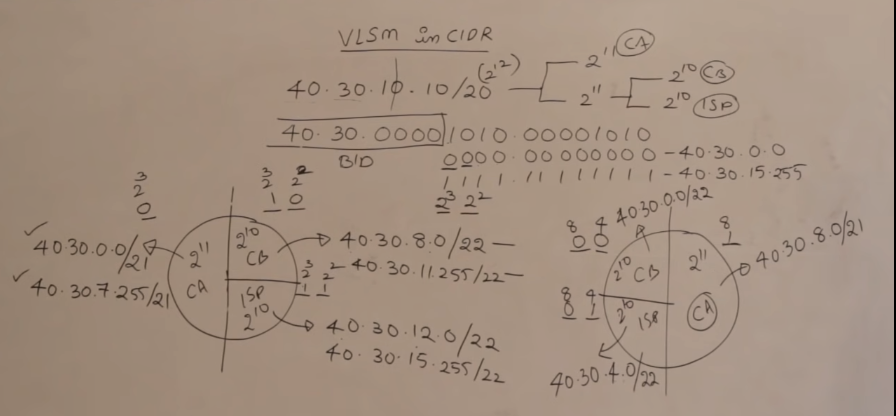 VLSM in CIDR
40.30.10.10/20 (2^12)
2^11 CA
2^11
2^10 CB
2^10 ISP
40.30.0000 1010.00001010
BID
0000.00000000 - 40.30.0.0
1111.11111111 - 40.30.15.255
2^3 2^2
2^3
0
2^3 2^2
1 0
40.30.0.0/21
40.30.7.255/21
2^11
CA
2^10
CB
ISP
2^10
40.30.8.0/22 -
- 40.30.11.255/22 -
2^3 2^2
1 1
40.30.12.0/22
40.30.15.255/22
8 4
0 0
40.30.0.0/22
8
1
40.30.8.0/21
2^10 CB
2^11
8 4
0 1
2^10 ISP
CA
40.30.4.0/22